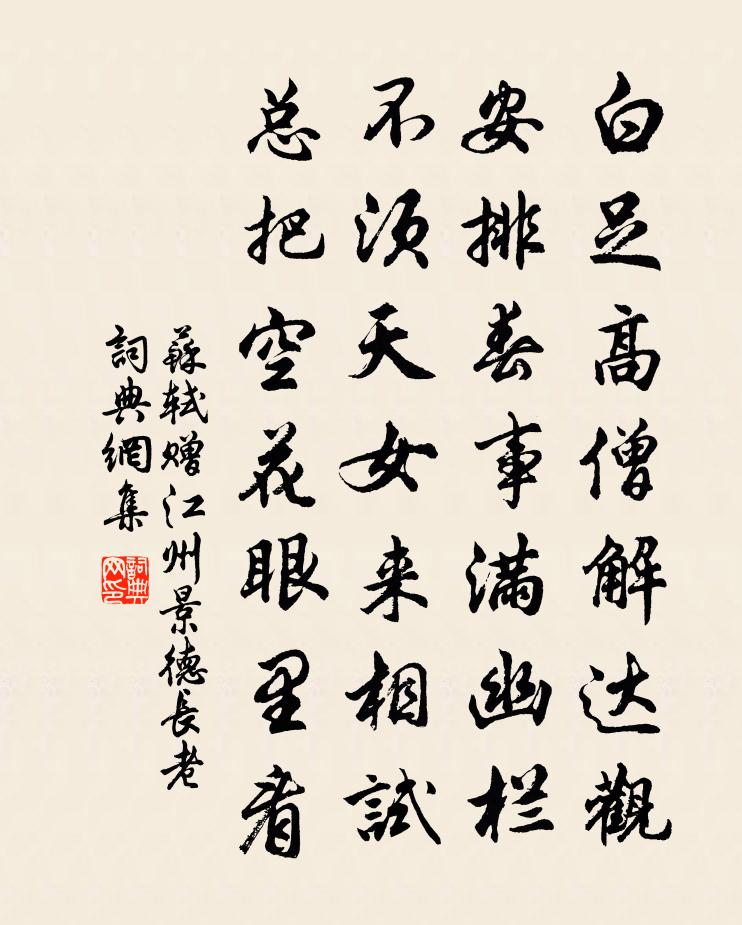 白足高僧解达觀
安排春事满幽栏
不须天女来相試
总把空花眼里看
蘇轼赠江州景德長老
詞典網集
詞典网印